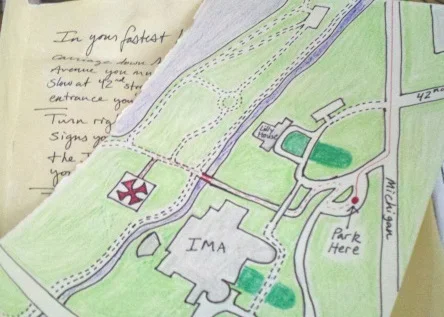 In your fastest
carriage down
Avenue you mu
Slow at 42nd stre
entrance you
Turn rig
Signs yo
the I
yo
42nd
Lilly
House
Michigan
Park
Here
IMA